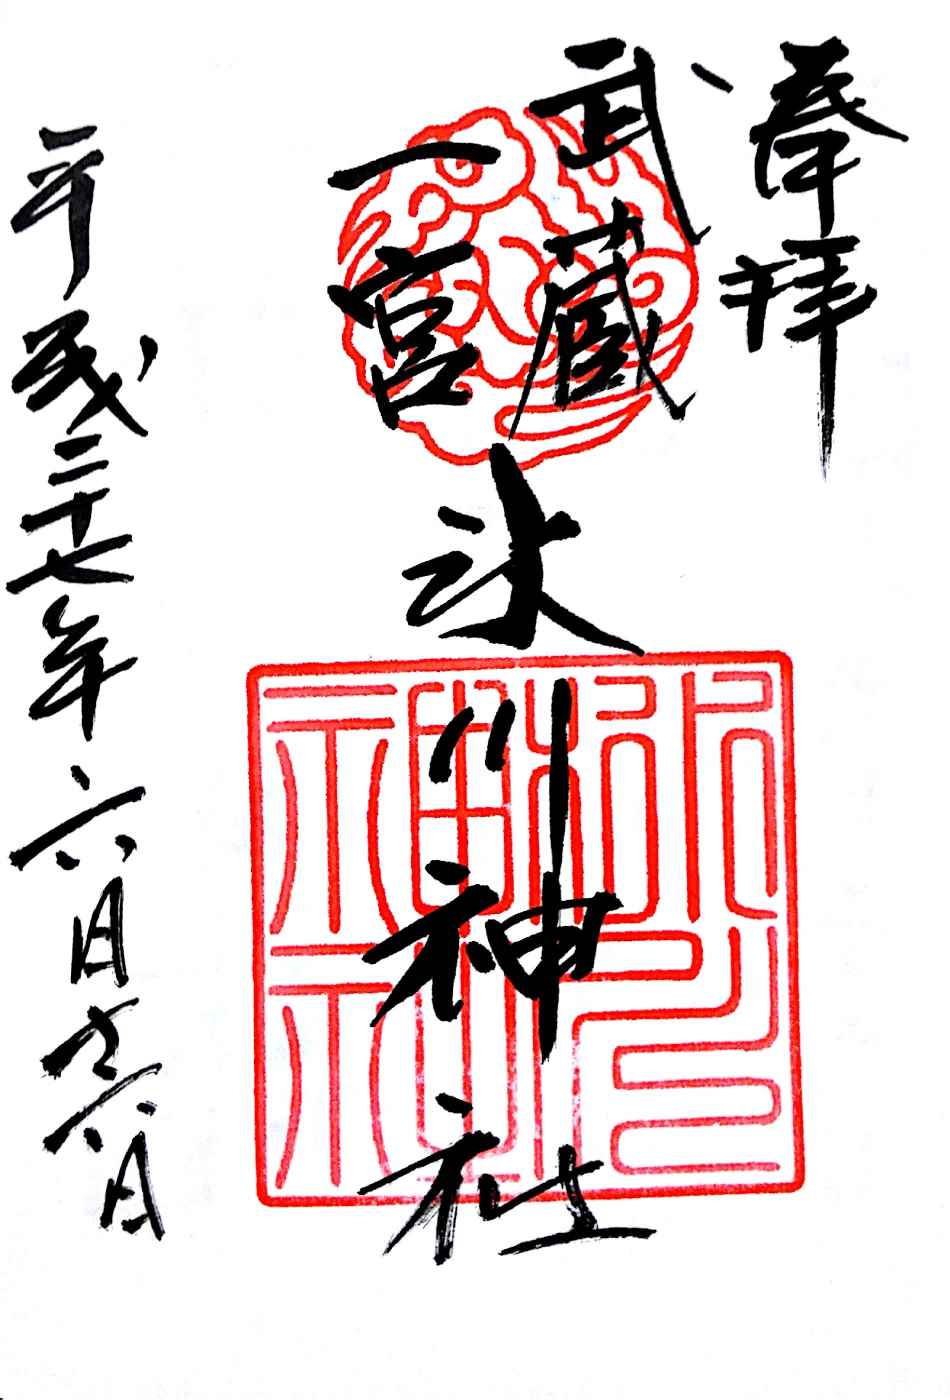 奉拝
武蔵
一宮
氷川神社
平成二十七年六月十六日
氷川
神社